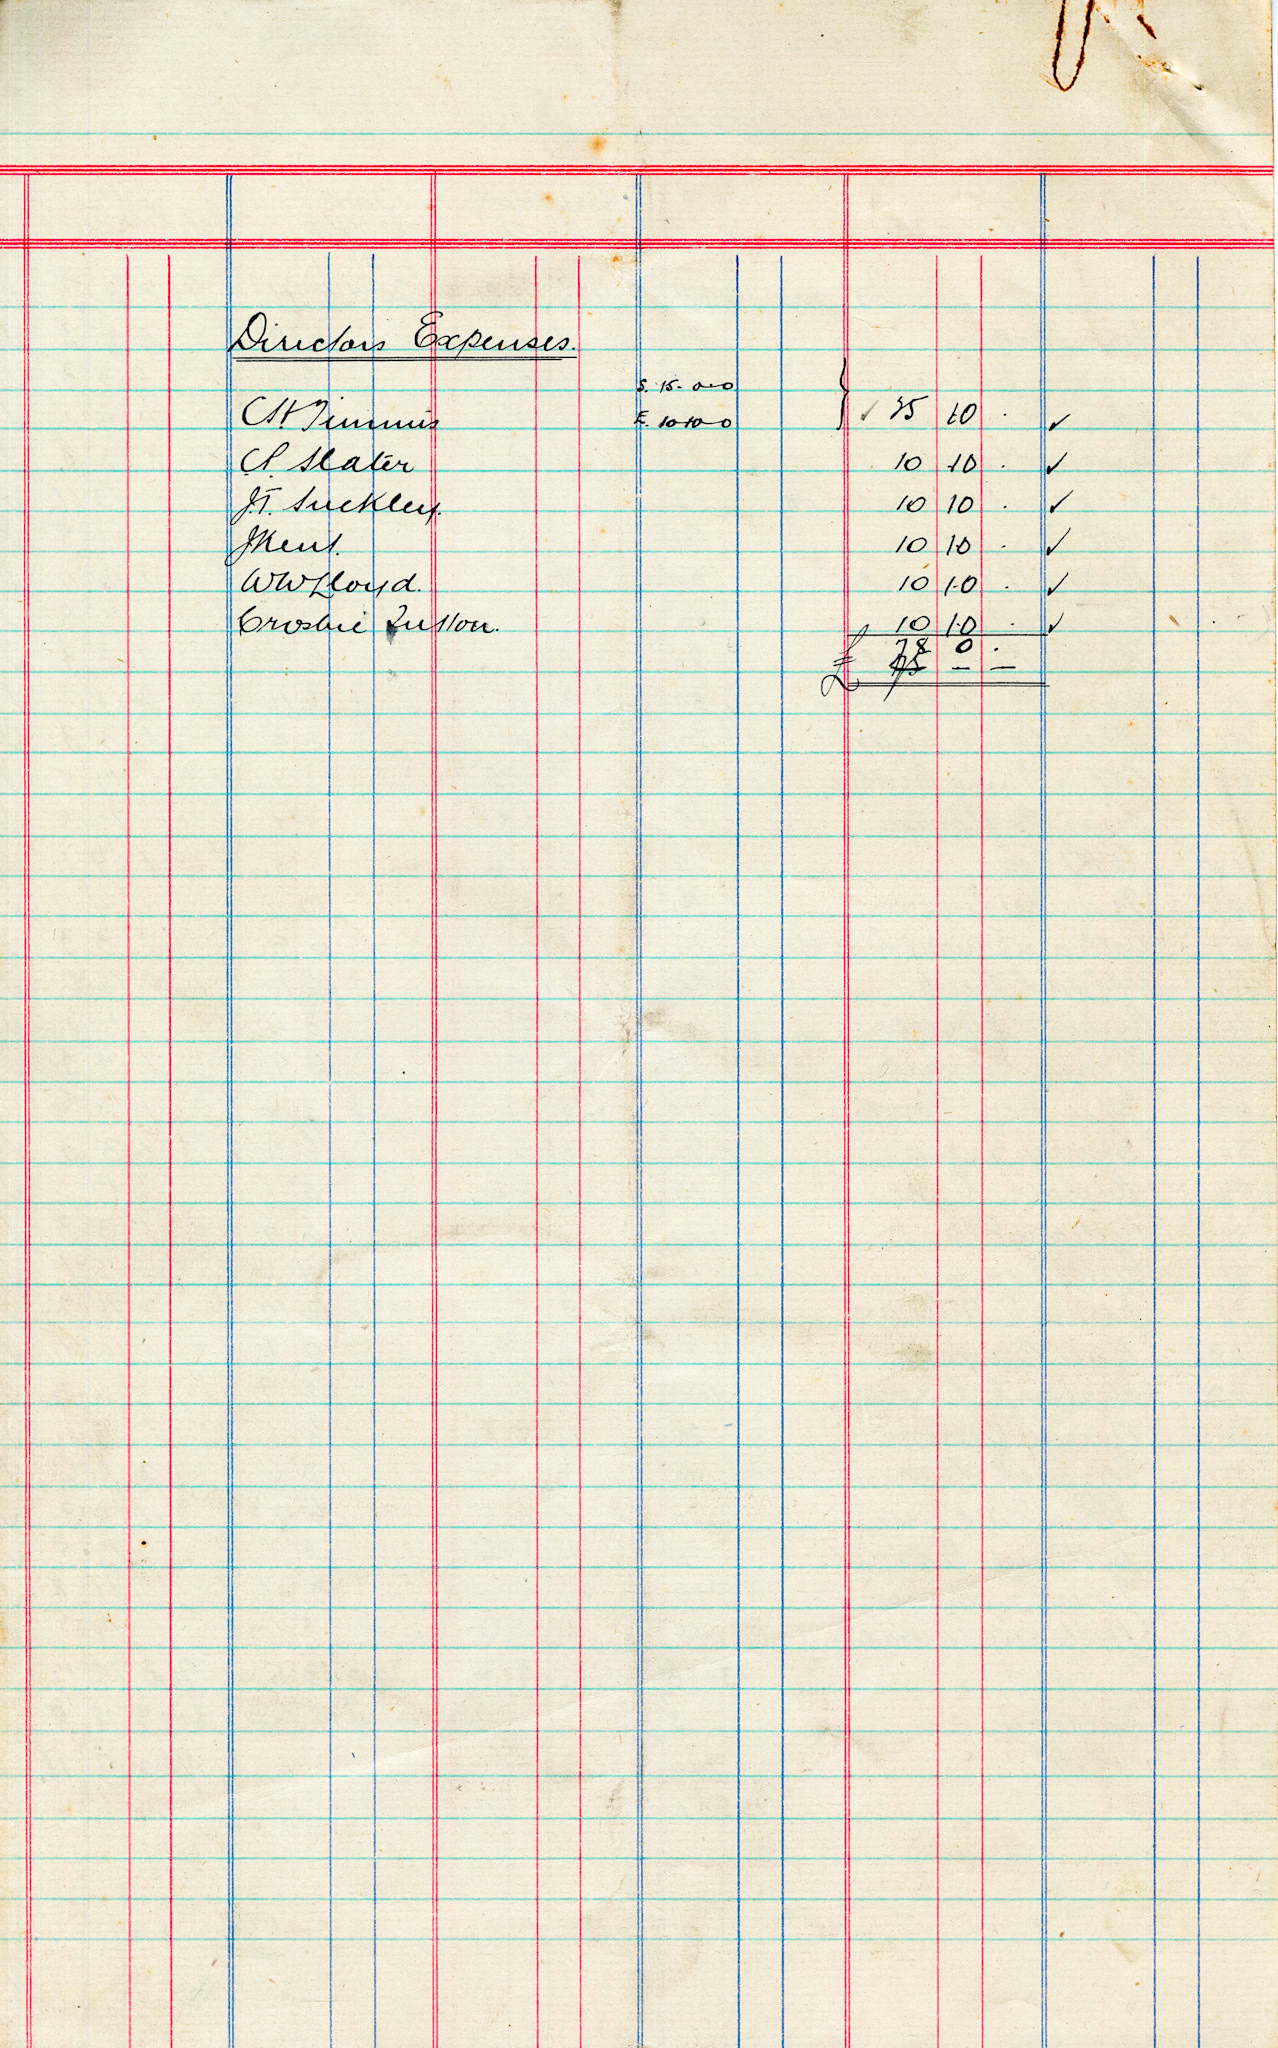 Directors Expenses.
S. 15-0-0
CH Timmis E. 10-10-0 } ✓ 25 10 . ✓
C. Slater 10 10 . ✓
J.T. Suckley. 10 10 . ✓
J Kent. 10 10 . ✓
WW Lloyd. 10 10 . ✓
Crosbie Sutton. 10 10 . ✓
78 0 .
£ – –